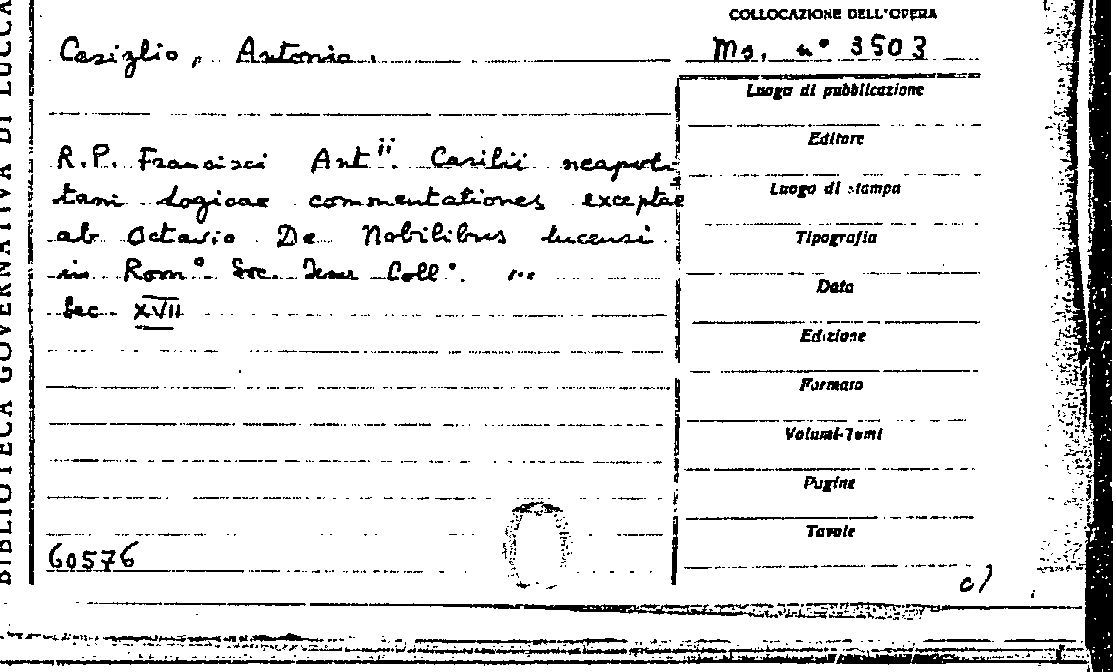 BIBLIOTECA GOVERNATIVA DI LUCCA
COLLOCAZIONE DELL'OPERA
Casiglio, Antonio.
Ms. n° 3503
R.P. Francisci Ant.ii Casilii neapoli-
tani logicae commentationes exceptae
ab Octavio De Nobilibus lucensi
in Rom° Soc. Jesu Coll°. ...
Sec. XVII
60576
Luogo di pubblicazione
Editore
Luogo di stampa
Tipografia
Data
Edizione
Formato
Volumi-Tomi
Pagine
Tavole
c)